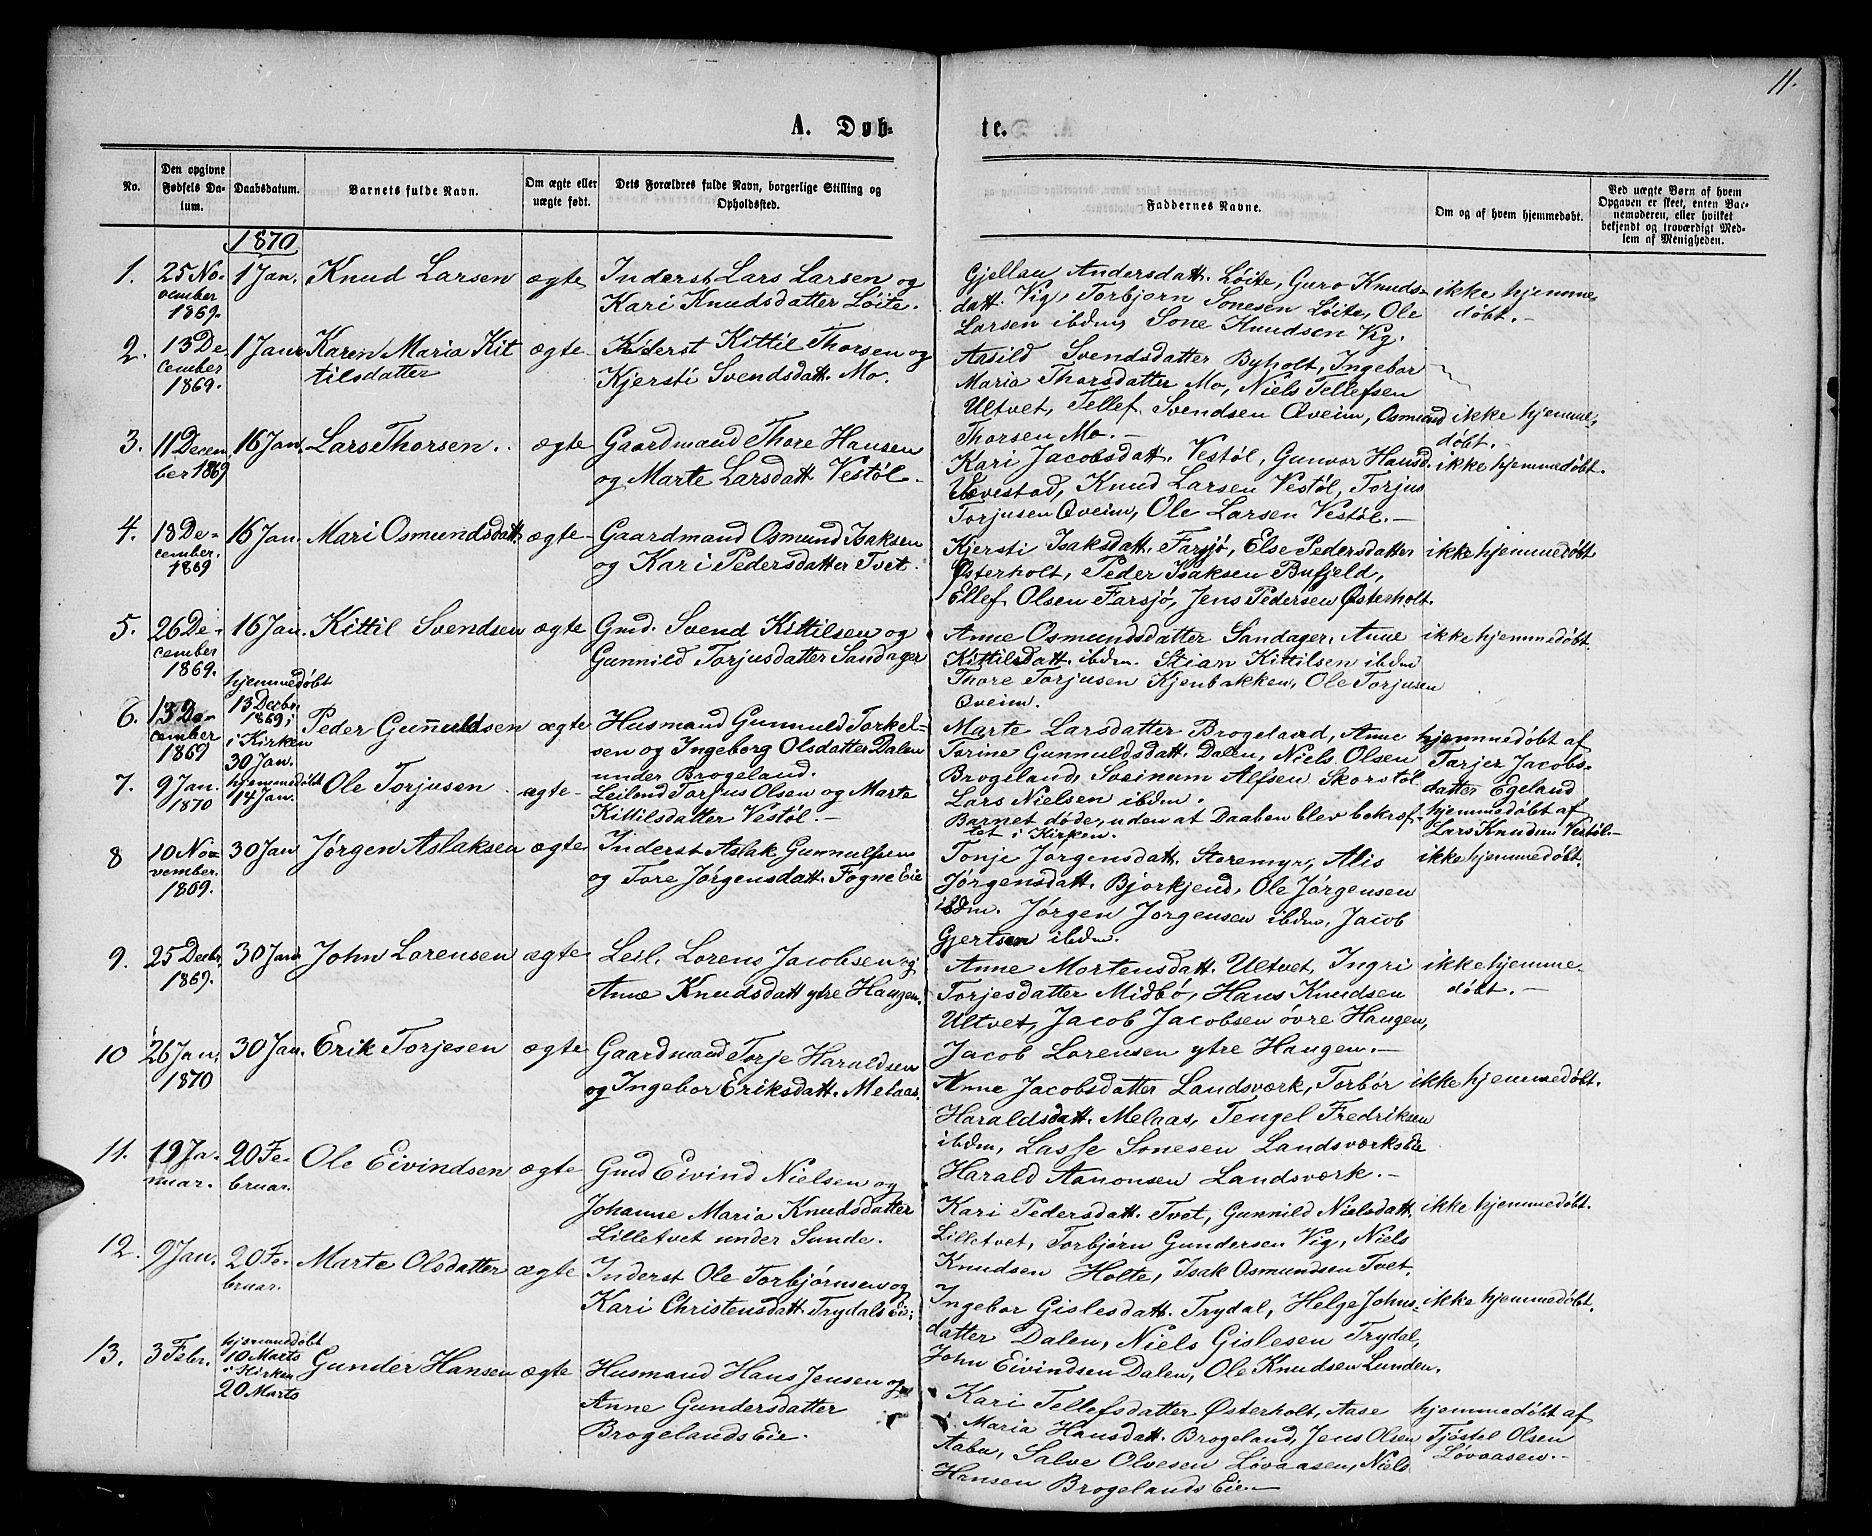 11.
A. Døb-
te.
No.
Den opgivne
Fødsels Da-
tum.
Daabsdatum.
Barnets fulde Navn.
Om ægte eller
uægte født.
Dets Forældres fulde Navn, borgerlige Stilling og
Opholdssted.
Faddernes Navne.
Om og af hvem hjemmedøbt.
Ved uægte Børn af hvem
Opgaven er skeet, enten Bar-
nemoderen, eller hvilket
bekjendt og troværdigt Med-
lem af Menigheden.
1870
1.
25 No-
vember
1869.
1 Jan.
Knud Larsen
ægte
Inderst Lars Larsen og
Kari Knudsdatter Løite.
Gjellau Andersdatt. Løite, Guro Knuds-
datt. Vig, Torbjørn Sonesen Løite, Ole
Larsen ibdm, Sone Knudsen Vig.
ikke hjemme-
døbt.-
2.
13 De
cember
1869.
1 Janr
Karen Maria Kit
tilsdatter
ægte
Inderst Kittil Thorsen og
Kjersti Svendsdatt. Mo.
Aasild Svendsdatter Byholt, Ingebor
Maria Thorsdatter Mo, Niels Tellefsen
Ultvet, Tellef Svendsen Qveim, Osmund
Thorsen Mo.-
ikke hjemme,
døbt.-
3.
11 Decem
ber 1869
16 Jan.
Lars Thorsen.
ægte
Gaardmand Thore Hansen
og Marte Larsdatt Vestøl.
Kari Jacobsdatt. Vestøl, Gunvor Hansd.
Uvestad, Knud Larsen Vestøl, Torjus
Torjusen Qveim, Ole Larsen Vestøl.-
ikke hjemmedøbt.
4.
18 De-
cember.
1869
16 Jan.
Mari Osmundsdatt.
ægte
Gaardmand Osmund Isaksen
og Kari Pedersdatter Tvet.
Kjersti Isaksdatt. Farsjø, Else Pedersdatter
Østerholt, Peder Isaksen Bufjeld,
Ellef Olsen Farsjö, Jens Pedersen Østerholt.
ikke hjemmedøbt
5.
26 De-
cember
1869.
16 Jan.
Kittil Svendsen
ægte
Gmd. Svend Kittilsen og
Gunnild Torjusdatter Sandager
Anne Osmundsdatter Sandager, Anne
Kittilsdatt. ibdm. Stian Kittilsen ibdm
Thore Torjusen Kjenbakken, Ole Torjusen
Qveim.
ikke hjemmedøbt.
6.
13 De-
cember
1869
hjemmedøbt
13 Decbr.
1869;
i Kirken
30 Jan.
Peder Gunnuldsen
ægte
Husmand Gunnuld Torkel-
sen og Ingeborg Olsdatter Dalen
under Brogeland.
Marte Larsdatter Brogeland, Anne
Torine Gunnuldsdatt. Dalen, Niels Olsen
Brogeland, Sveinum Alfsen Skorstøl
Lars Nielsen ibdm.
hjemmedøbt af
Tarjer Jacobs-
datter Egeland
7.
9 Jan.
1870
hjemmedøbt
14 Jan.
Ole Torjusen
ægte
Leilend Torjus Olsen og Marte
Kittilsdatter Vestøl.-
Barnet døde, uden at Daaben blev bekræf-
tet i Kirken.
hjemmedøbt af
Lars Knudsen Vestøl.-
8
10 No-
vember.
1869.
30 Jan
Jørgen Aslaksen
ægte
Inderst Aslak Gunnulfsen
og Tore Jørgensdatt. Fogne Eie
Tonje Jørgensdatt. Storemyr, Alis
Jørgensdatt. Bjorkjend, Ole Jørgensen
ibdm. Jørgen Jorgensen ibdm, Jacob
Gjertsen ibdm.
ikke hjemmedøbt.
9.
25 Decbr.
1869.
30 Jan
John Lorensen
ægte
Leil. Lorens Jacobsen og
Anne Knudsdatt ytre Haugen.
Anne Mortensdatt. Ultvet, Ingri
Torjesdatter Midbø, Hans Knudsen
Ultvet, Jacob Jacobsen övre Haugen,
Jacob Lorensen ytre Haugen.-
ikke hjemme-
døbt.-
10
26 Jan.
1870
30 Jan.
Erik Torjesen
ægte
Gaardmand Torje Haraldsen
og Ingebor Eriksdatt. Melaas.
Anne Jacobsdatter Landsværk, Torbør
Haraldsdatt. Melaas, Tengel Fredriksen
ibdm, Lasse Sonesen Landsværks Eie
Harald Aanonsen Landsværk.-
ikke hjemmedøbt.
11.
19 Ja-
nuar.
20 Fe-
bruar.
Ole Eivindsen
ægte
Gmd Eivind Nielsen og
Johanne Maria Knudsdatter
Lilletvet under Sunde.
Kari Pedersdatt. Tvet, Gunnild Nielsdatt.
Lilletvet, Torbjørn Gundersen Vig, Niels
Knudsen Holte, Isak Osmundsen Tvet.
ikke hjemmedøbt.
12.
9 Jan.
20 Fe-
bruar.
Marte Olsdatter
ægte
Inderst Ole Torbjørnsen og
Kari Christensdatt Trydals Eie;
Ingebor Gislesdatt. Trydal, Helge Johns-
datter Dalen, Niels Gislesen Trydal,
John Eivindsen Dalen, Ole Knudsen Lunden.
ikke hjemmedøbt.
13.
3 Febr.
hjemmedøbt
10 Marts
i Kirken
20 Marts
Gunder Hansen
ægte
Husmand Hans Jensen og
Anne Gundersdatter
Brogelands Eie.
Kari Tellefsdatter Østerholt, Aase
Maria Hansdatt. Brogeland, Jens Olsen
Aabu, Salve Olvesen Løvaasen, Niels
Hansen Brogelands Eie.-
hjemmedøbt af
Tjøstel Olsen
Løvaasen.-